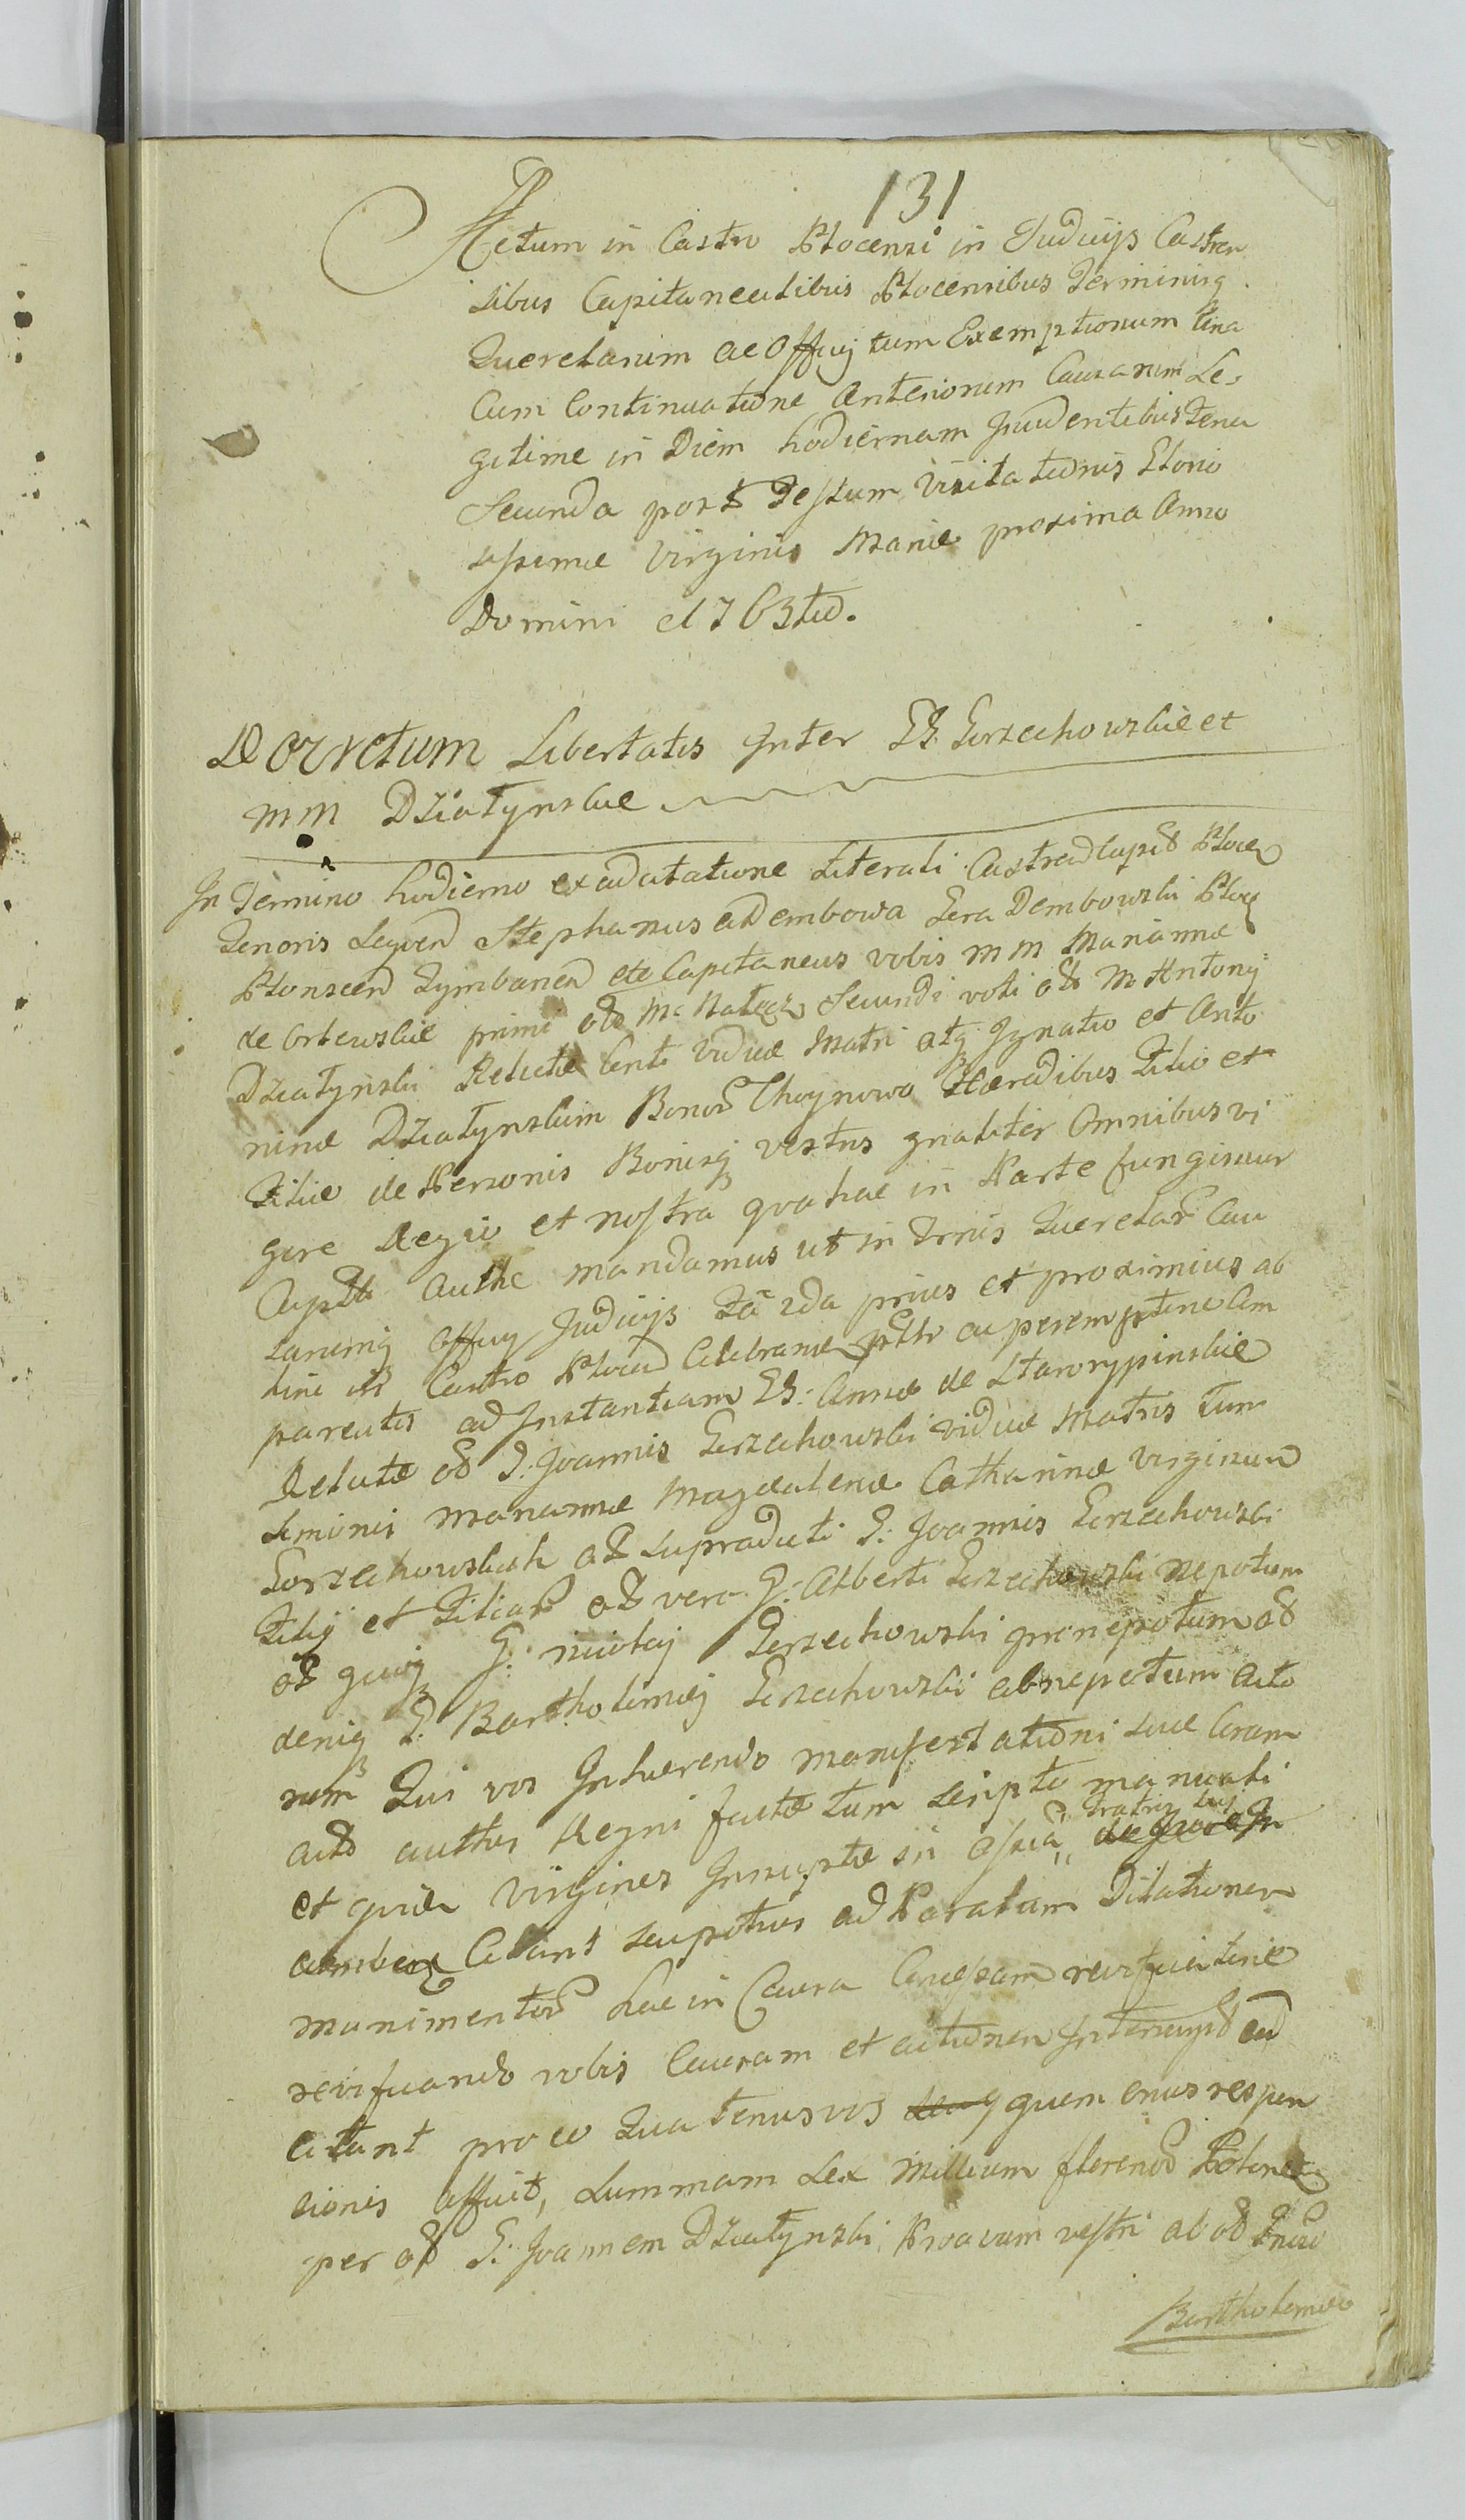 131
Actum in Castro Plocensi in Judicijs Castren
sibus Capitanealibus Plocensibus Terminisq
Querelarum ac Officij tum Exemptionum Una
Cum Continuatione Anteriorum Causarum Le-
gitime in Diem hodiernam Incidentibus Feria
Secunda post Festum Visitationis Glorio
sissimæ Virginis Mariæ proxima Anno
Domini 1763tio.
Decretum Libertatis Inter GG. Gorzechowskie et
MM Dziatynskie
In Termino hodierno ex Citatione Literali Castren Capitt Plocen
Tenoris Sequen Stephanus a Dembowa Gora Dembowski Ploc
Plonscen Tymbarcen etc Capitaneus vobis MM Mariannæ
de primi Secundi voti olt M Antonij
Dziatynski Relictæ Viduæ Matri atq Ignatio et Anto
ninæ Dziatynskim Bonor Choynowo Hæredibus Filio et
Filiæ de Personis Bonisq vestris gnaliter Omnibus vi
gore Regio et nostra qua hac in Parte fungimur
Captli Autte mandamus ut in Trnis Querelar Cau
sarumq Officij Judicijs Fa 2da prius et proximius ab
hinc in Castro Plocen Celebramen pnltr ac peremptorie Com
pareatis ad Instantiam GG: Annæ de Starorypinskie
Relictæ olt G: Joannis Gorzechowski viduæ Matris tum
Simonis Mariannæ Magdalenæ Catharinæ Virginum
Gorzechowskich olt Supradicti G: Joannis Gorzechowski
Filij et Filiar olt vero G: Alberti Gorzechowski Nepotum
olt quoq G: Nicolaj Gorzechowski pronepotum olt
deniq G: Bartholomæj Gorzechowski abnepotum Acto
rum Qui vos Inhærendo manifestationi suæ Coram
Actis Autthis Regni factæ tum Scripto manuali
et quia Virgines Innuptæ in Fratris sui
Citant Seu potius ad Paratam Dilationem
munimentor hac in Causa
vobis Causam et actionem
citant pro eo Quatenus vos quem onus respon
sionis afficit, Summam Sex Millium florenor Polonal
per olt G: Joannem Dziatynski Proavum vestri ab olt
Bartholomæo